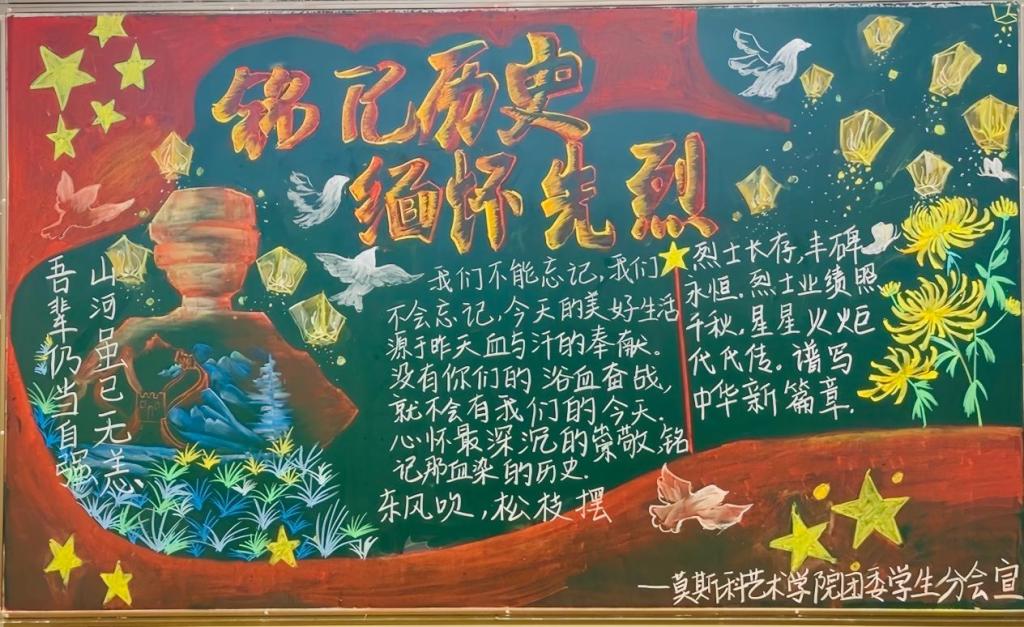 铭记历史
缅怀先烈
山河虽已无恙
吾辈仍当自强
我们不能忘记,我们
不会忘记,今天的美好生活
源于昨天血与汗的奉献。
没有你们的浴血奋战,
就不会有我们的今天.
心怀最深沉的荣敬,铭
记那血染的历史.
东风吹,松枝摆
烈士长存,丰碑
永恒.烈士业绩照
千秋,星星火炬
代代传。谱写
中华新篇章.
—莫斯科艺术学院团委学生分会宣